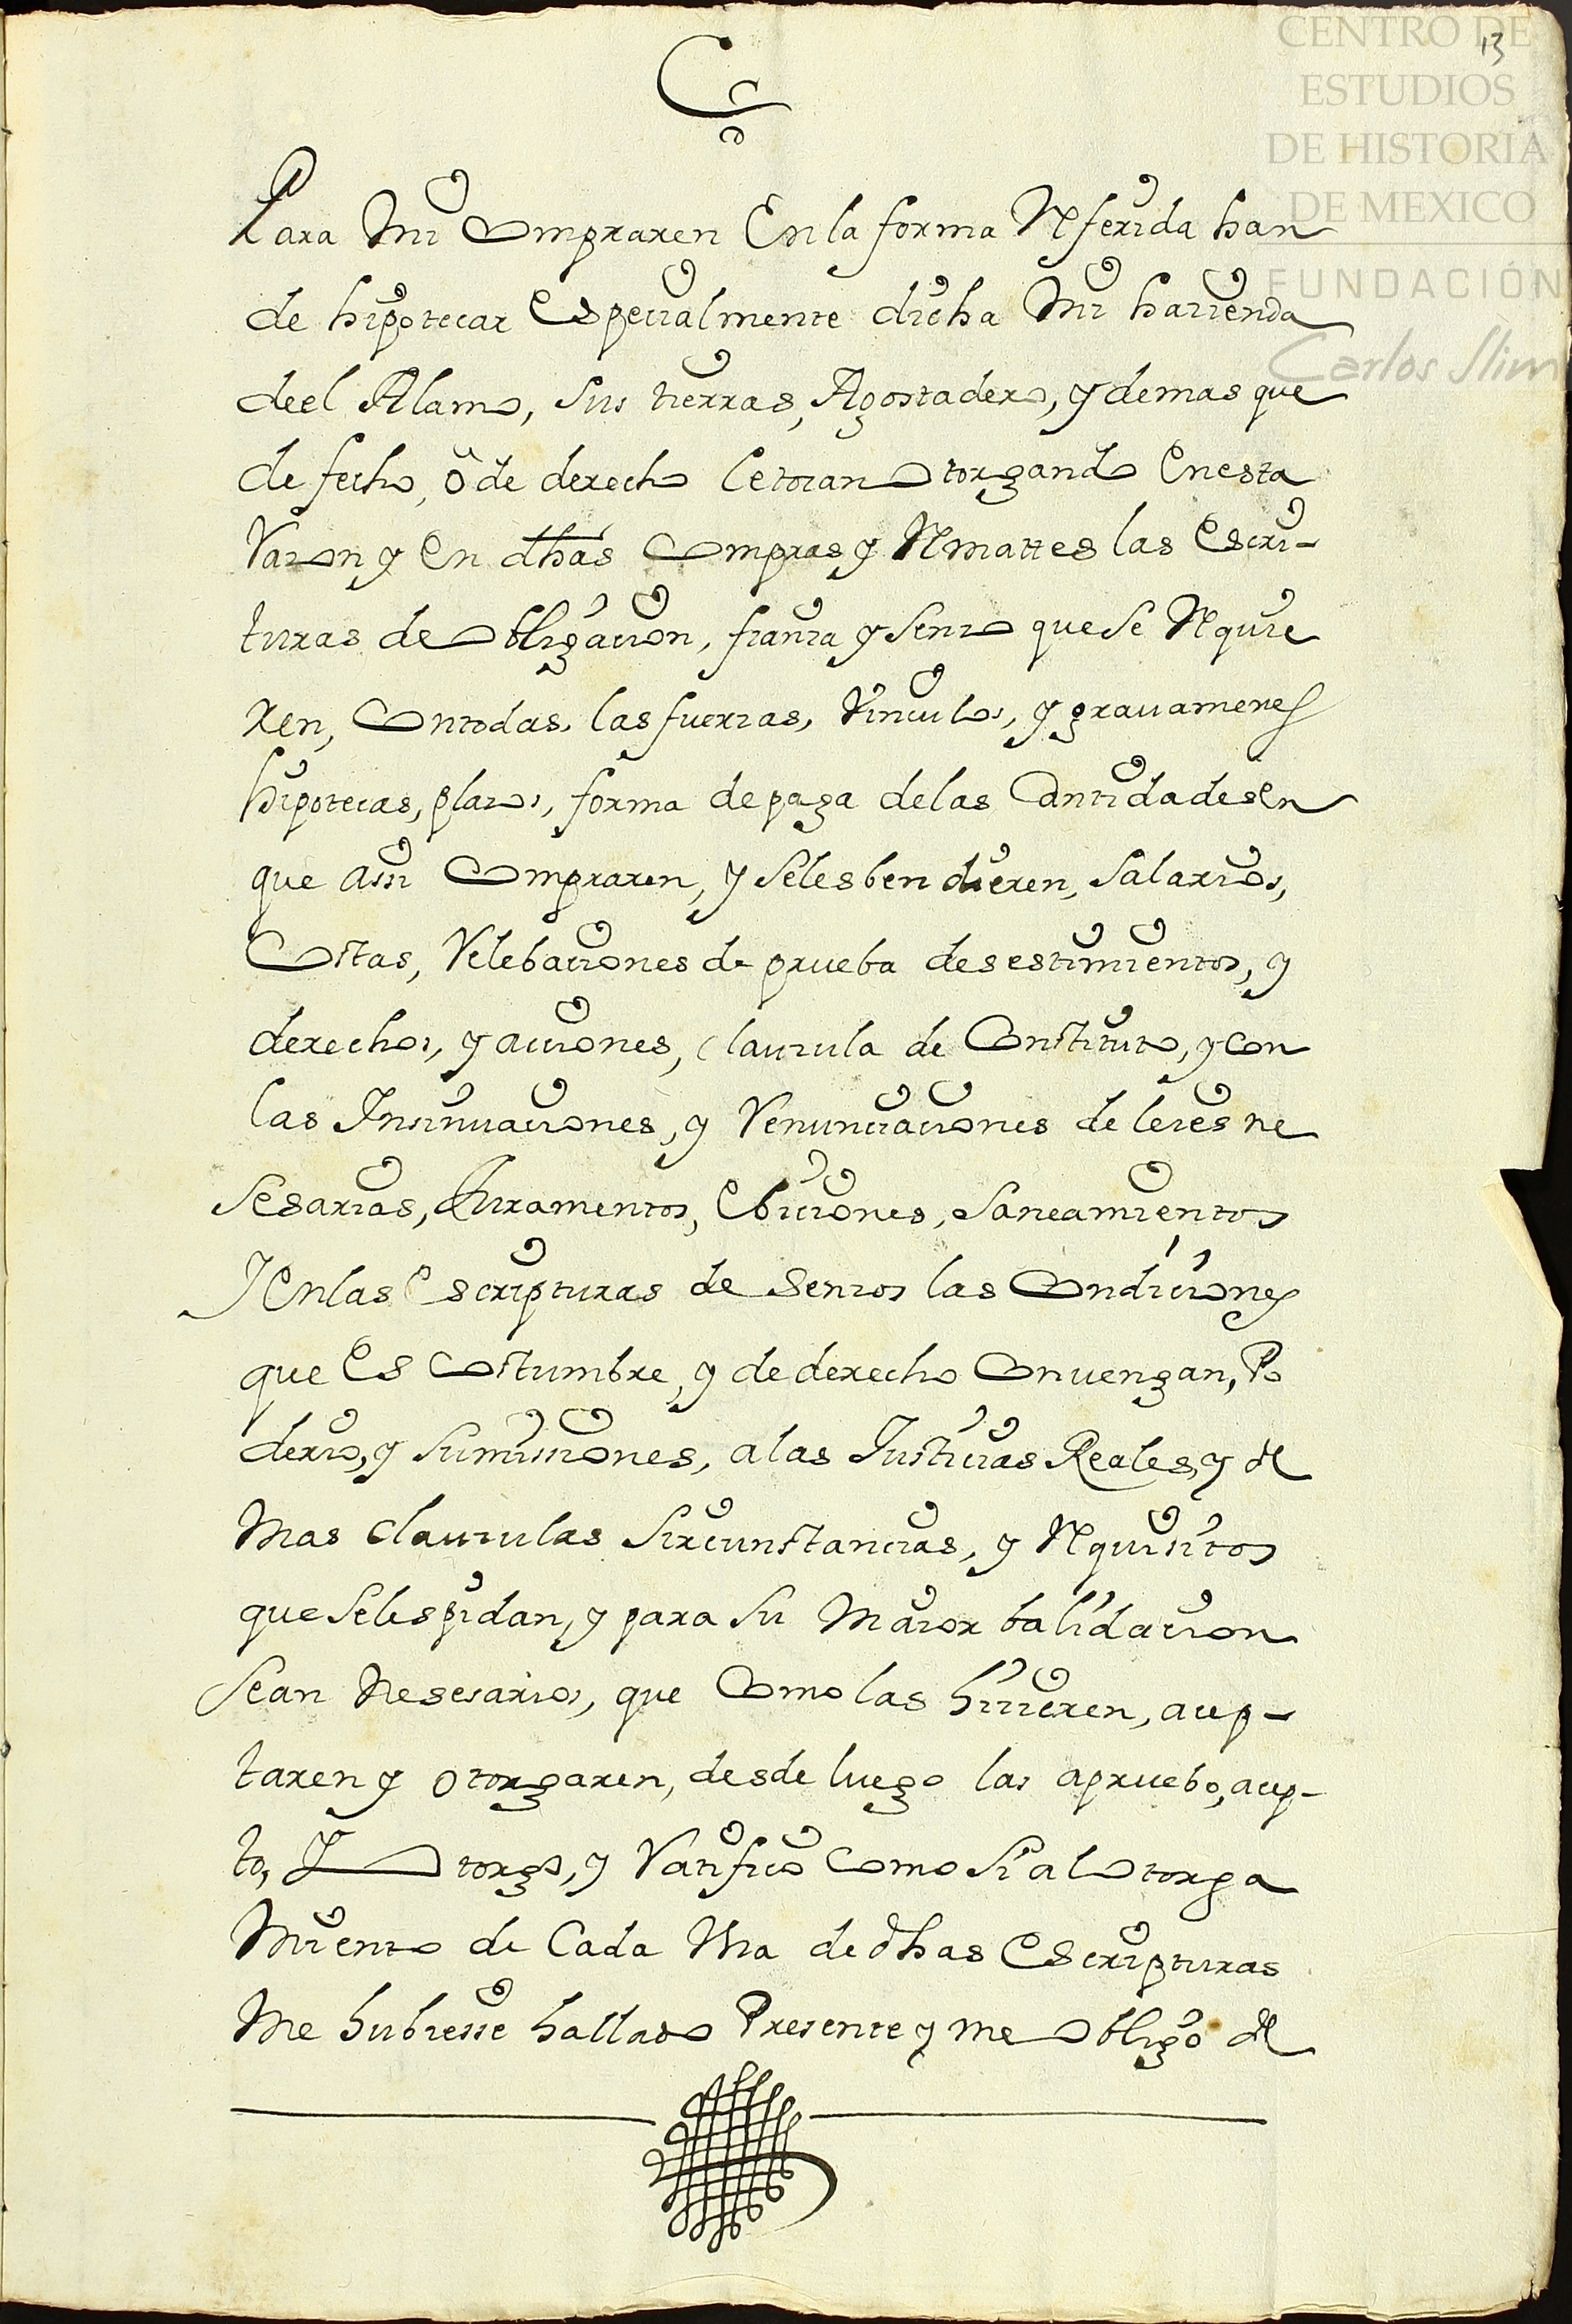 13
CENTRO DE
ESTUDIOS
DE HISTORIA
DE MEXICO
FUNDACIÓN
Carlos Slim
Para mi compraren en la forma Referida han
de hipotecar especialmente dicha mi hazienda
deel Alamo, sus tierras, Agostadero, y demas que
de fecho, ô de derecho le tocan otorgando en esta
Razon y en dhas compras y Remattes las escri-
turas de obligacion, fianza y senso que se Requie
ren, con todas, las fuerzas, vinculos, y grauamenes
hipotecas, plazos, forma de paga de las cantidades en
que assi compraren, y se les bendieren, salarios,
costas, Relebaciones de prueba desestimientos, y
derechos, y acciones, clauzula de constituto, y con
las Insinuaciones, y Renunciaciones de leies ne
sesarias, Juramentos, ebiciones, saneamientos
Y en las escripturas de sensos las condiciones
que es costumbre, y de derecho conuengan, Po
derio, y sumissiones, a las Justicias Reales, y de
mas clauzulas sircunstancias, y Requisitos
que se les pidan, y para su maior balidacion
sean nesesarios, que como las hizieren, acep-
taren y otorgaren, desde luego las apruebo, acep-
to, Y otorgo, y Ratifico como si al otorga
miento de cada Vna de dhas escripturas
me hubiesse hallado Presente y me obligo de